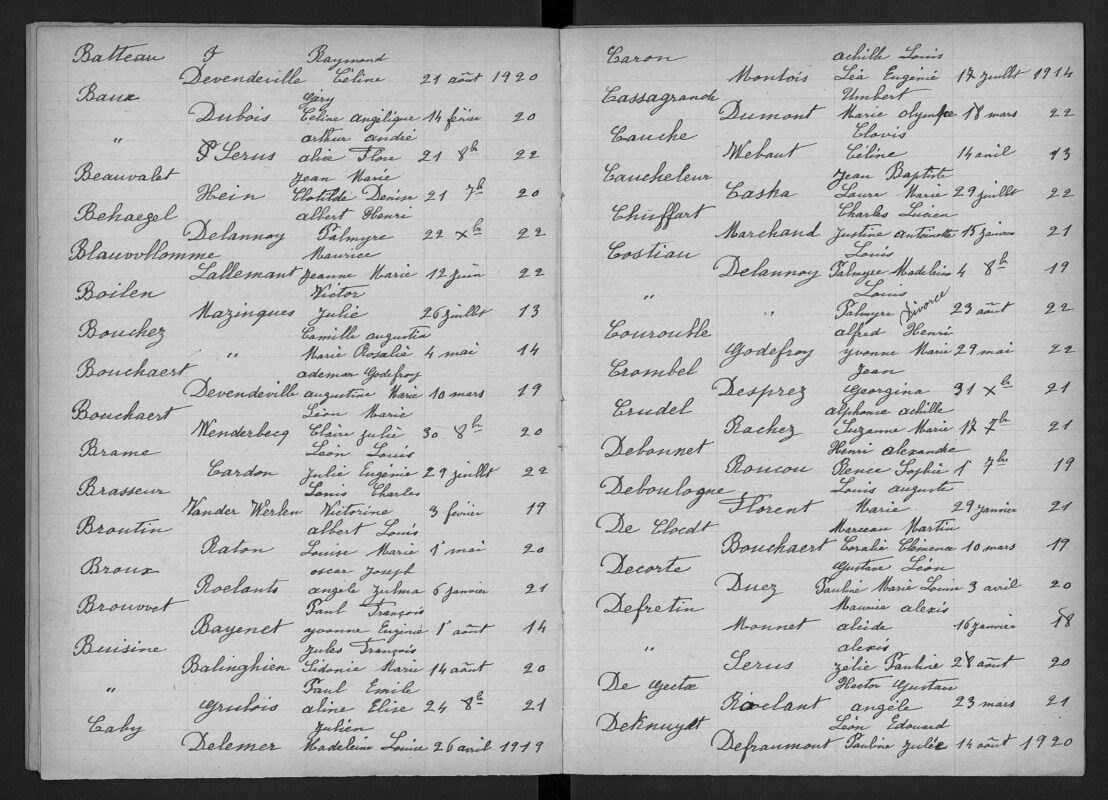 Batteau F Raymond
Devendeville Céline 21 août 1920
Baux Géry
Dubois Céline angélique 14 février 20
" arthur andré
Serus alice Flore 21 8b 22
Beauvalet Jean Marie
Hein Clotilde Denise 21 7b 20
Behaegel albert Henri
Delannoy Palmyre 22 xb 22
Blauwblomme Maurice
Lallemant Jeanne Marie 12 juin 22
Boilen Victor
Mazingues Julie 26 juillet 13
Bouchez Camille augustin
" Marie Rosalie 4 mai 14
Bouchaert ademar Godefroy
Devendeville augustine Marie 10 mars 19
Bouchaert Léon Marie
Wenderbecq Claire julie 30 8b 20
Brame Léon Louis
Cardon Julie Eugénie 29 juillet 22
Brasseur Louis Charles
Vander Werken Victorine 3 février 19
Broutin albert Louis
Raton Louise Marie 1r mai 20
Broux oscar Joseph
Roelants angèle zulma 6 janvier 21
Brouvvet Paul François
Bayenet yvonne Eugénie 1r août 14
Buisine Jules François
Balinghien Sidonie Marie 14 août 20
" Paul Emile
Grulois aline Elise 24 8b 21
Caby Julien
Delemer Madeleine Louise 26 avril 1919
Caron achille Louis
Montois Léa Eugénie 17 juillet 1914
Cassagrande Umbert
Dumont Marie olympe 18 mars 22
Cauche Clovis
Webaut Céline 14 avril 13
Caucheleur Jean Baptiste
Caska Laure Marie 29 juillet 22
Chuffart Charles Lucien
Marchand Justine Antoinette 15 janvier 21
Costiau Louis
Delannoy Palmyre Madeleine 4 8b 19
" Louis
" Palmyre divorce 23 août 22
Courouble alfred Henri
Godefroy yvonne Marie 29 mai 22
Crombel Jean
Desprez Georgina 31 xb 21
Crudel alphonse achille
Rachez Suzanne Marie 17 7b 21
Debonnet Henri alexandre
Roucou Renée Sophie 1r 7bre 19
Deboulogne Louis auguste
Florent Marie 29 janvier 21
De Clocdt Marceau Martin
Bouchaert Coralie Clémence 10 mars 19
Decorte Gustave Léon
Duez Pauline Marie Louise 3 avril 20
Defretin Maurice alexis
Monnet alcide 16 janvier 18
" alexis
Serus zélie Pauline 28 août 20
De Geetæ Hector Gustave
Roelant angèle 23 mars 21
Deknuydt Léon Edouard
Defraumont Pauline Julie 14 août 1920